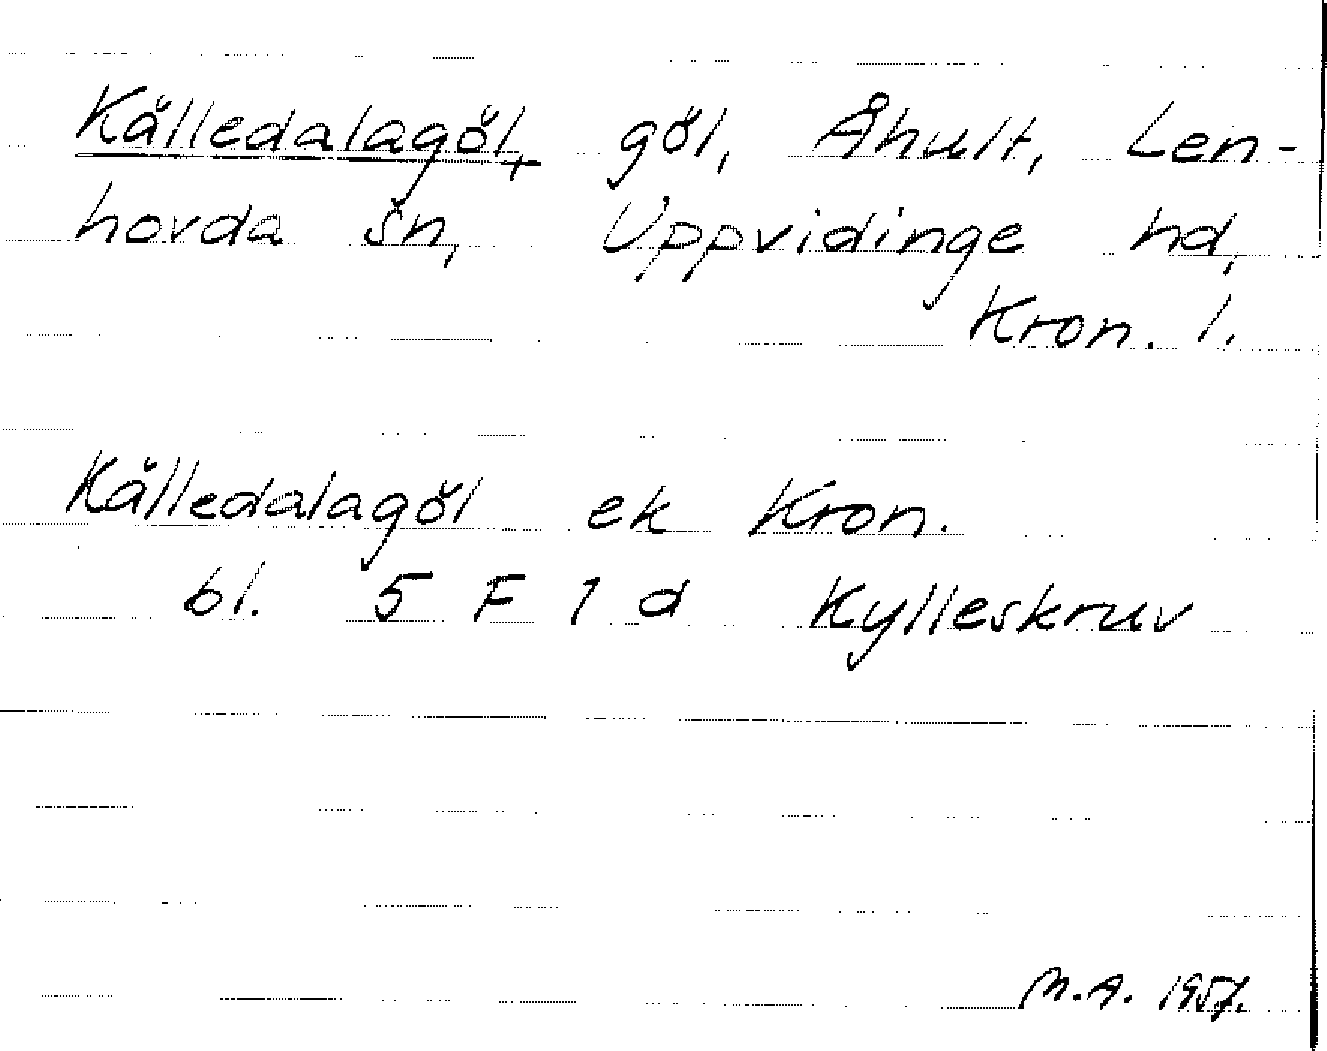 Källedalagöl, göl, Åhult, Len-
hovda sn, Uppvidinge hd,
Kron. l.
Källedalagöl ek Kron.
bl. 5 F 1 d Kylleskruv
M.A. 1957.